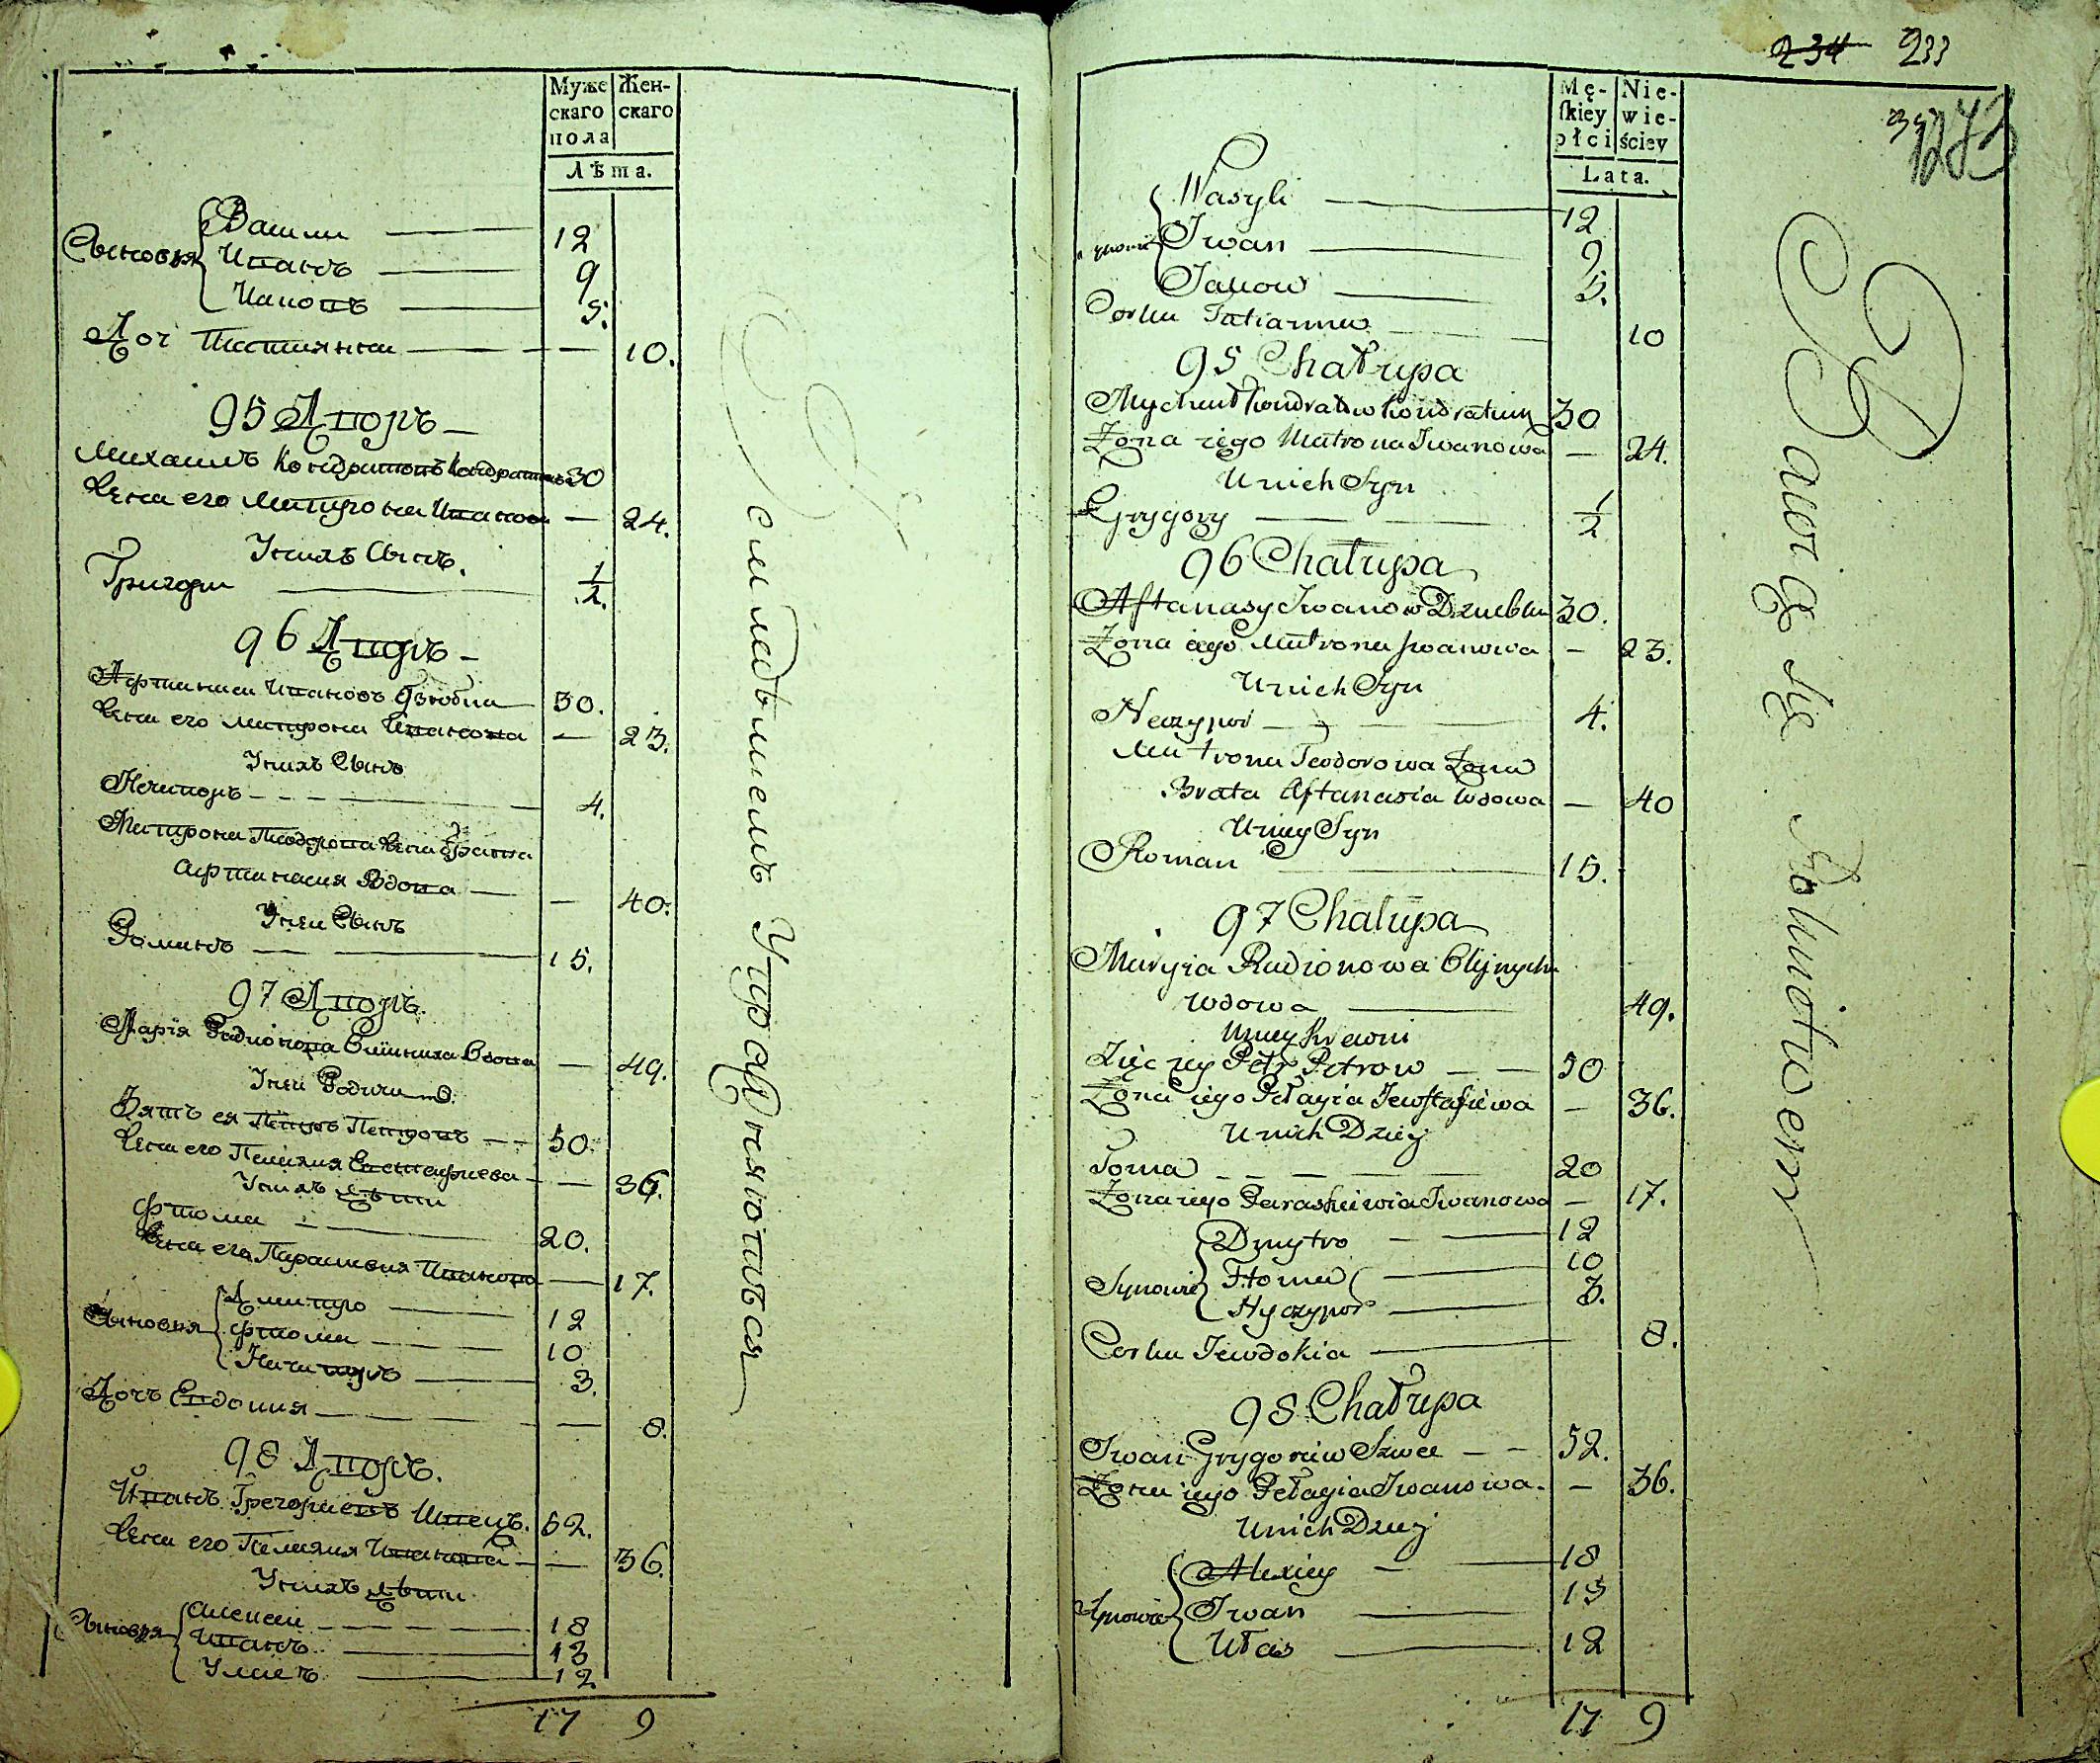 Муже скаго пола
Жен- скаго
Лѣта.
Сыновья
Василии 12
Иванъ 9
Иаковъ 5.
Доч Татиянна 10.
95 Дворъ
Михаилъ Кондратовъ 30
Жена его Матрона Иванова 24.
У нихъ Сынъ.
Григори 1/2.
96 Дворъ
Афтанаси Ивановъ Дзюбка 30.
Жена его Матрона Иванова 23.
У нихъ Сынъ
Нечипоръ 4.
Матрона Теодорова Жена Брата
Афтанасия Вдова 40.
У неи Сынъ
Романъ 15.
97 Дворъ.
Марія Радионова Олийниха Вдова 49.
У неи Родичи
Зять ея Петръ Петровъ 50.
Жена его Пелагия Евстафиева 36.
У нихъ Дѣти
Фтома 20.
Жена его Парасковия Иванова 17.
Сыновья
Дмитро 12
Фтома 10
Ничипоръ 3.
Дочъ Евдокия 8.
98 Дворъ.
Иванъ Грегориевъ Швецъ. 52.
Жена его Пелагия Иванова 36.
У нихъ Дѣти
Сыновья
Алексеи 18
Иванъ 13
Уласъ 12
17 9
Семиадѣтелъ
234 233
273
Mę- skiey płci
Nie- wie- ściey
Lata.
Synowie
Wasyli 12
Iwan 9
Jakow 5.
Corka Tatianna 10
95 Chałupa
Mychał Kondratow 30
Żona iego Matrona Iwanowa 24.
U nich Syn
Grygory 1/2
96 Chałupa
Aftanasy Iwanow Dziubka 30.
Żona iego Matrona Iwanowa 23.
U nich Syn
Neczypor 4.
Matrona Teodorowa Żona
Brata Aftanasia Wdowa 40
U niey Syn
Roman 15.
97 Chałupa
Maryia Radionowa Olijnycha
Wdowa 49.
U niey Krewni
Zięć iey Petr Petrow 50
Żona iego Pełagia Jewstafiewa 36.
U nich Dziey
Toma 20
Żona iego Paraskiewia Iwanowa 17.
Synowie
Dmytro 12
Ftoma 10
Nyczypor 3.
Corka Jewdokia 8.
98 Chałupa
Iwan Grygoriw Szwec 52.
Żona iego Pełagia Iwanowa 36.
U nich Dziey
Synowie
Alexiey 18
Iwan 13
Ułas 12
17 9